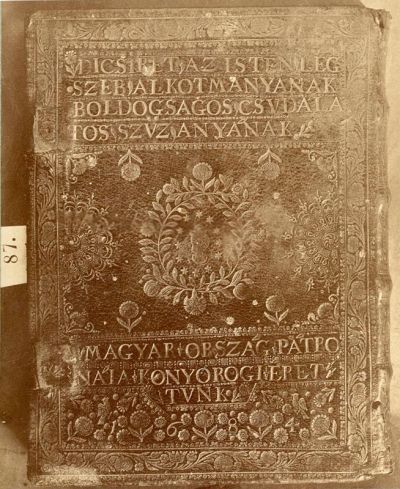 DICSIRET, AZ ISTEN LEG
SZEB, ALKOTMANYANAK
BOLDOGSAGOS, CSUDALA
TOS, SZUZ, ANYANAK
MAGYAR ORSZAG PATRO
NAIA KONYOROGI ERET
TUNK
1 6 8 4
87.